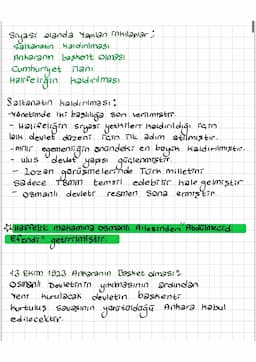 Siyasi alanda Yapılan inkılaplar:
Saltanatın Kaldırılması
Ankaranın başkent olması
Cumhuriyet ilanı
Halifeliğin kaldırılması
Saltanatın Kaldırılması:
-Yönetimde iki başlılığa son verilmiştir.
- Halifeliğin siyasi yetkileri kaldırıldığı için
laik devlet düzeni için ilk adım atılmıştır.
-milli egemenliğin önündeki en büyük kaldırılmıştır.
- ulus devlet yapısı güçlenmiştir.
- Lozan görüşmelerinde Türk milletini
sadece TBMM temsil edebilir hale gelmiştir
- osmanlı devleti resmen Sona ermiştir.
Halifelik makamına osmanlı Ailesinden "Abdülmecid
Efendi" getirilmiştir.
13 Ekim 1923 Ankaranın Başket olması:
Osmanlı Devletinin yıkılmasının ardından
Yeni kurulacak devletin başkenti
kurtuluş savaşının yürütüldüğü Ankara kabul
edilecektir.